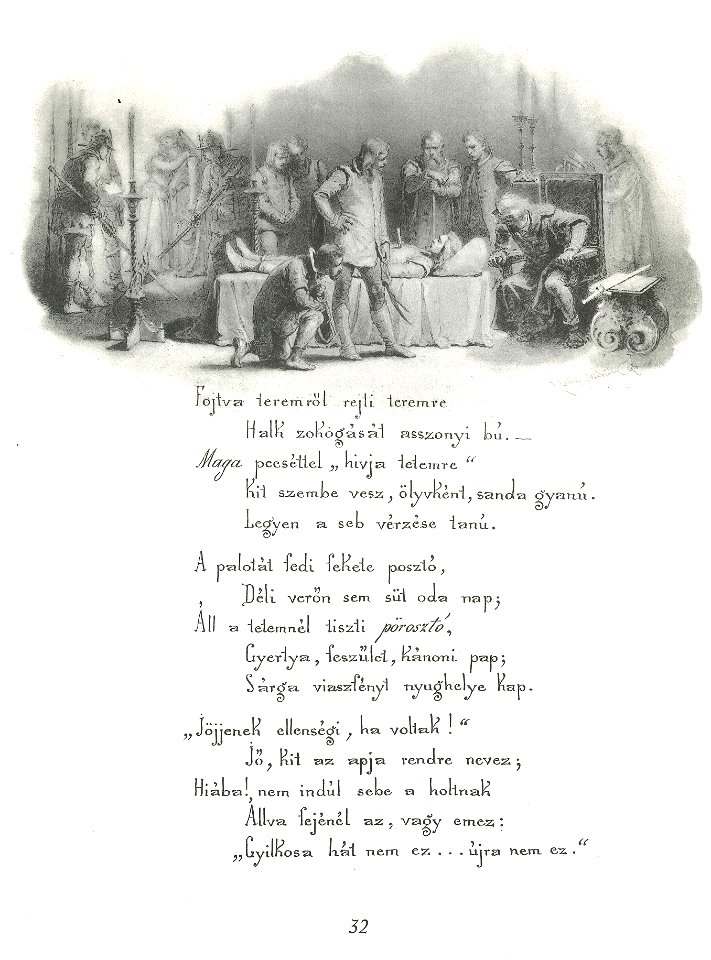 Fojtva teremről rejti teremre
Halk zokogását asszonyi bú. —
Maga pecséttel „hivja tetemre“
Kit szembe vesz, ölyvként, sanda gyanú.
Legyen a seb vérzése tanú.
A palotát fedi fekete posztó,
Déli verőn sem süt oda nap;
Áll a tetemnél tiszti pörosztó,
Gyertya, feszület, kánoni pap;
Sárga viaszfényt nyughelye kap.
„Jöjjenek ellenségi, ha voltak!“
Jő, kit az apja rendre nevez;
Hiába! nem indúl sebe a holtnak
Állva fejénél az, vagy emez:
„Gyilkosa hát nem ez... újra nem ez.“
32